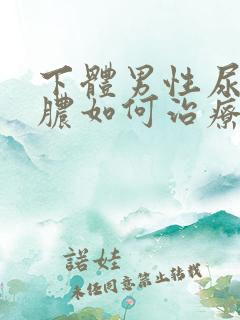 下體男性尿
膿如何治療
諾娃
未經同意禁止轉載